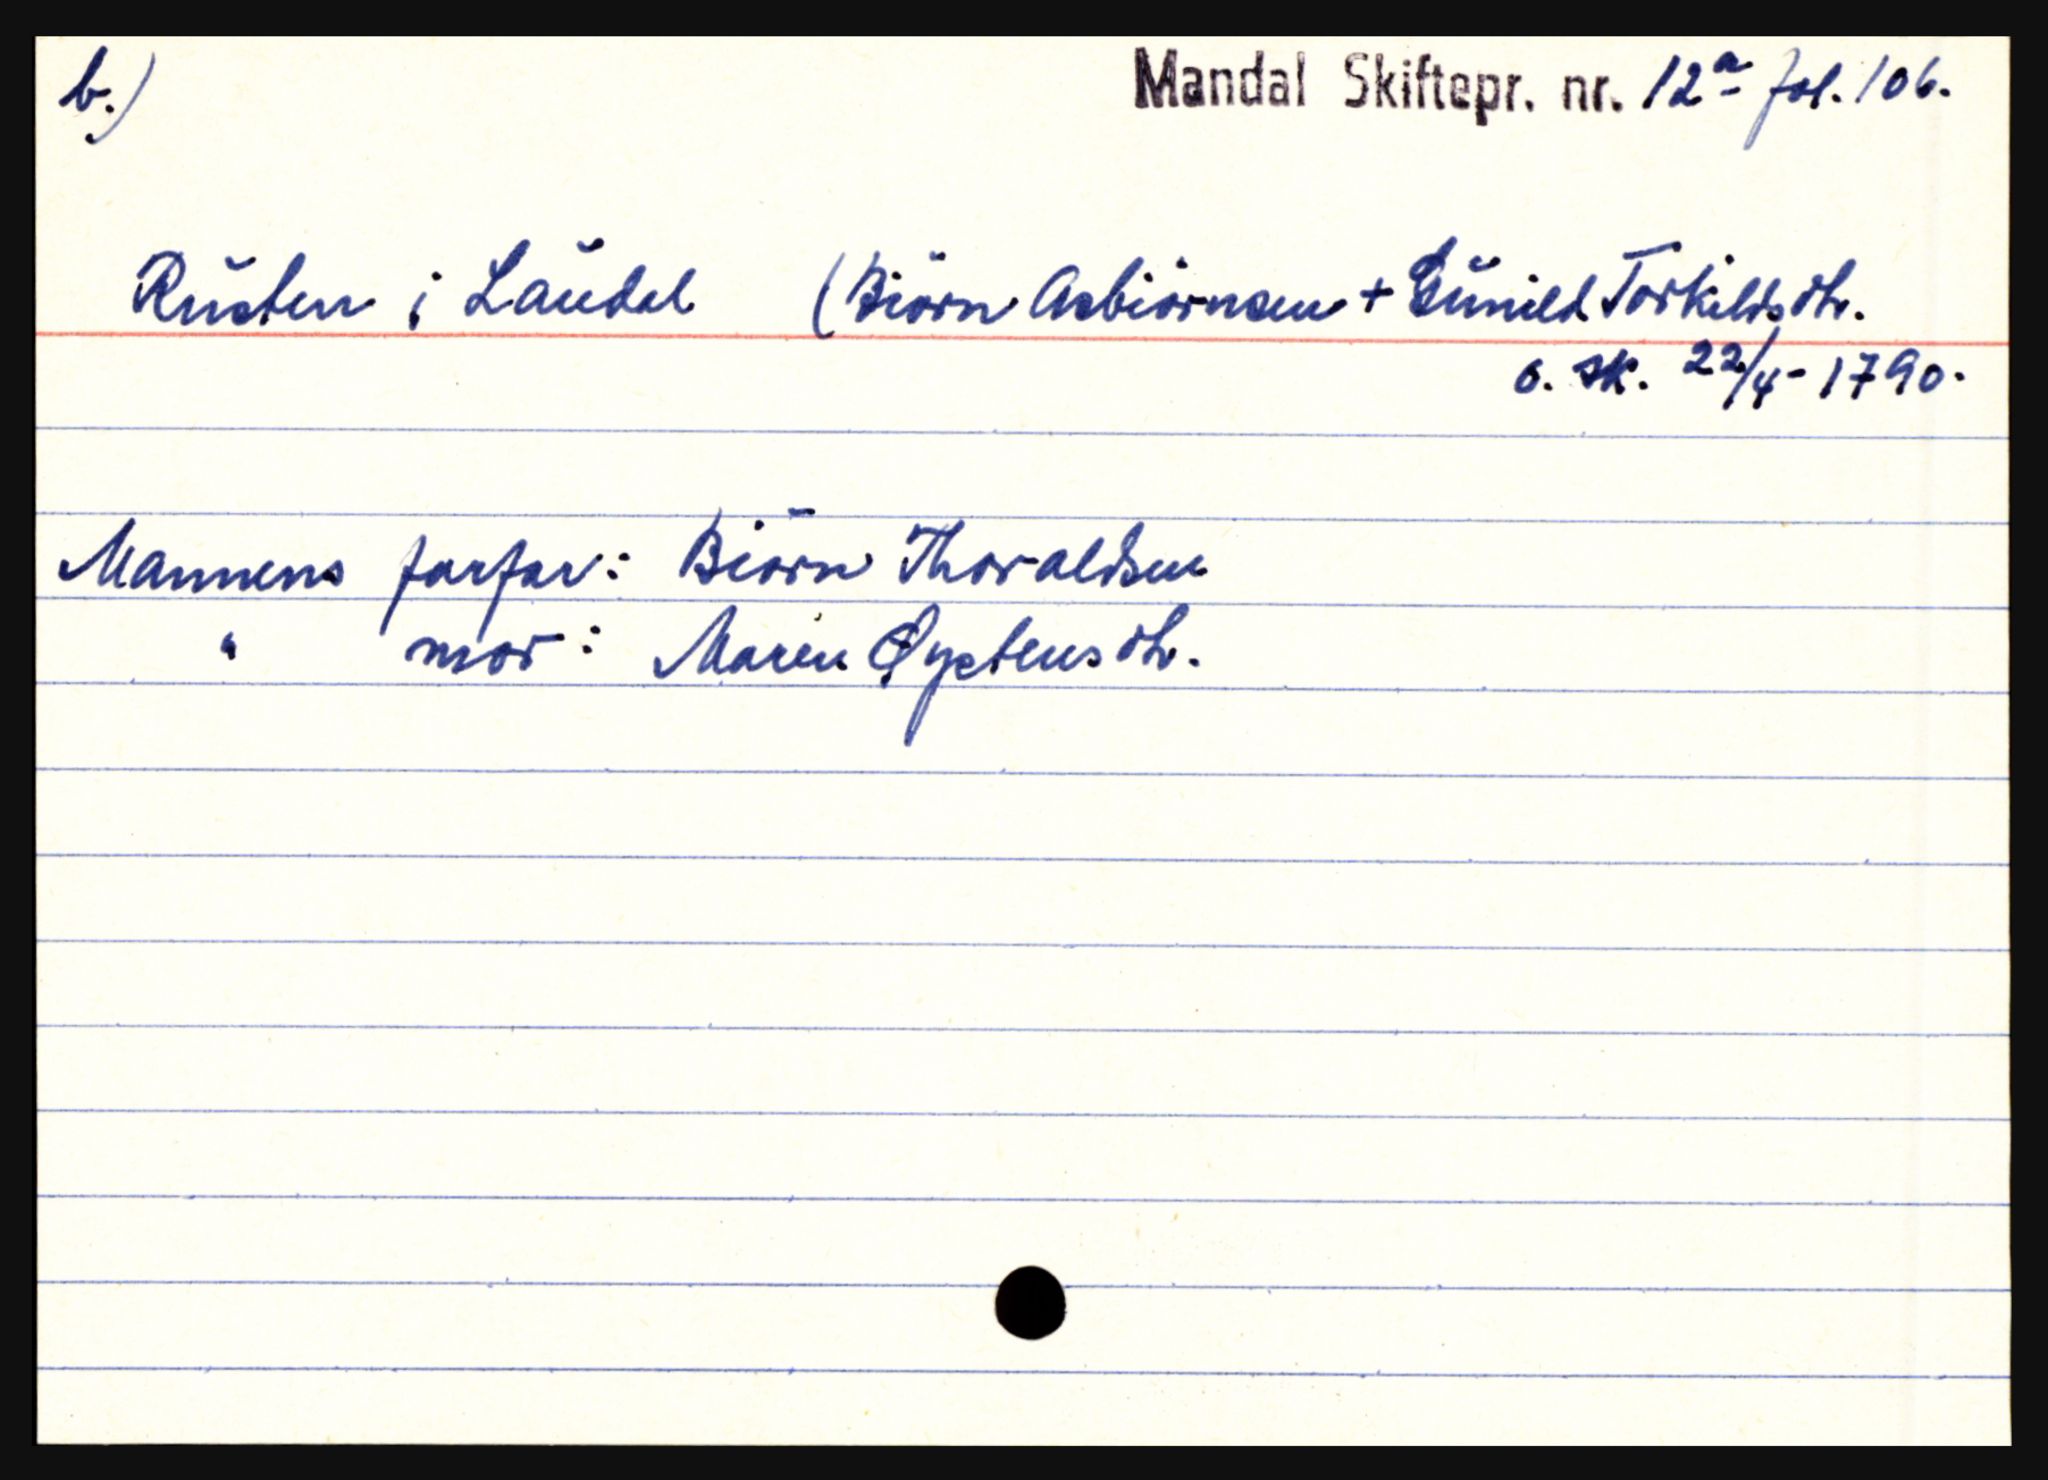 b.) Mandal Skiftepr. nr. 12a fol. 106.
Rusten i Laudal (Biörn Asbiörnsen + Gunild Torkildsdtr.
o. sk. 22/4-1790.
Mannens farfar: Biörn Thoraldsen
" mor: Maren Øystensdtr.